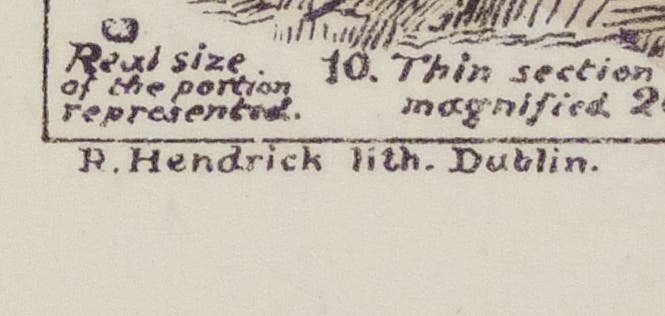 Real size
of the portion
represented.
10. Thin section
magnified 2
R. Hendrick lith. Dublin.